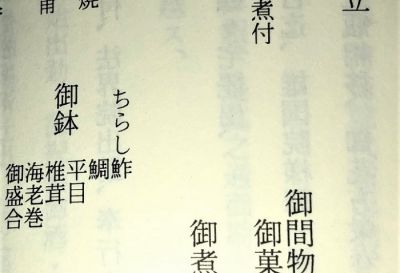 立
煮付
御間物
御菓
御煮
ちらし鮓
鯛
御鉢
平目
椎茸
海老巻
御盛合
焼